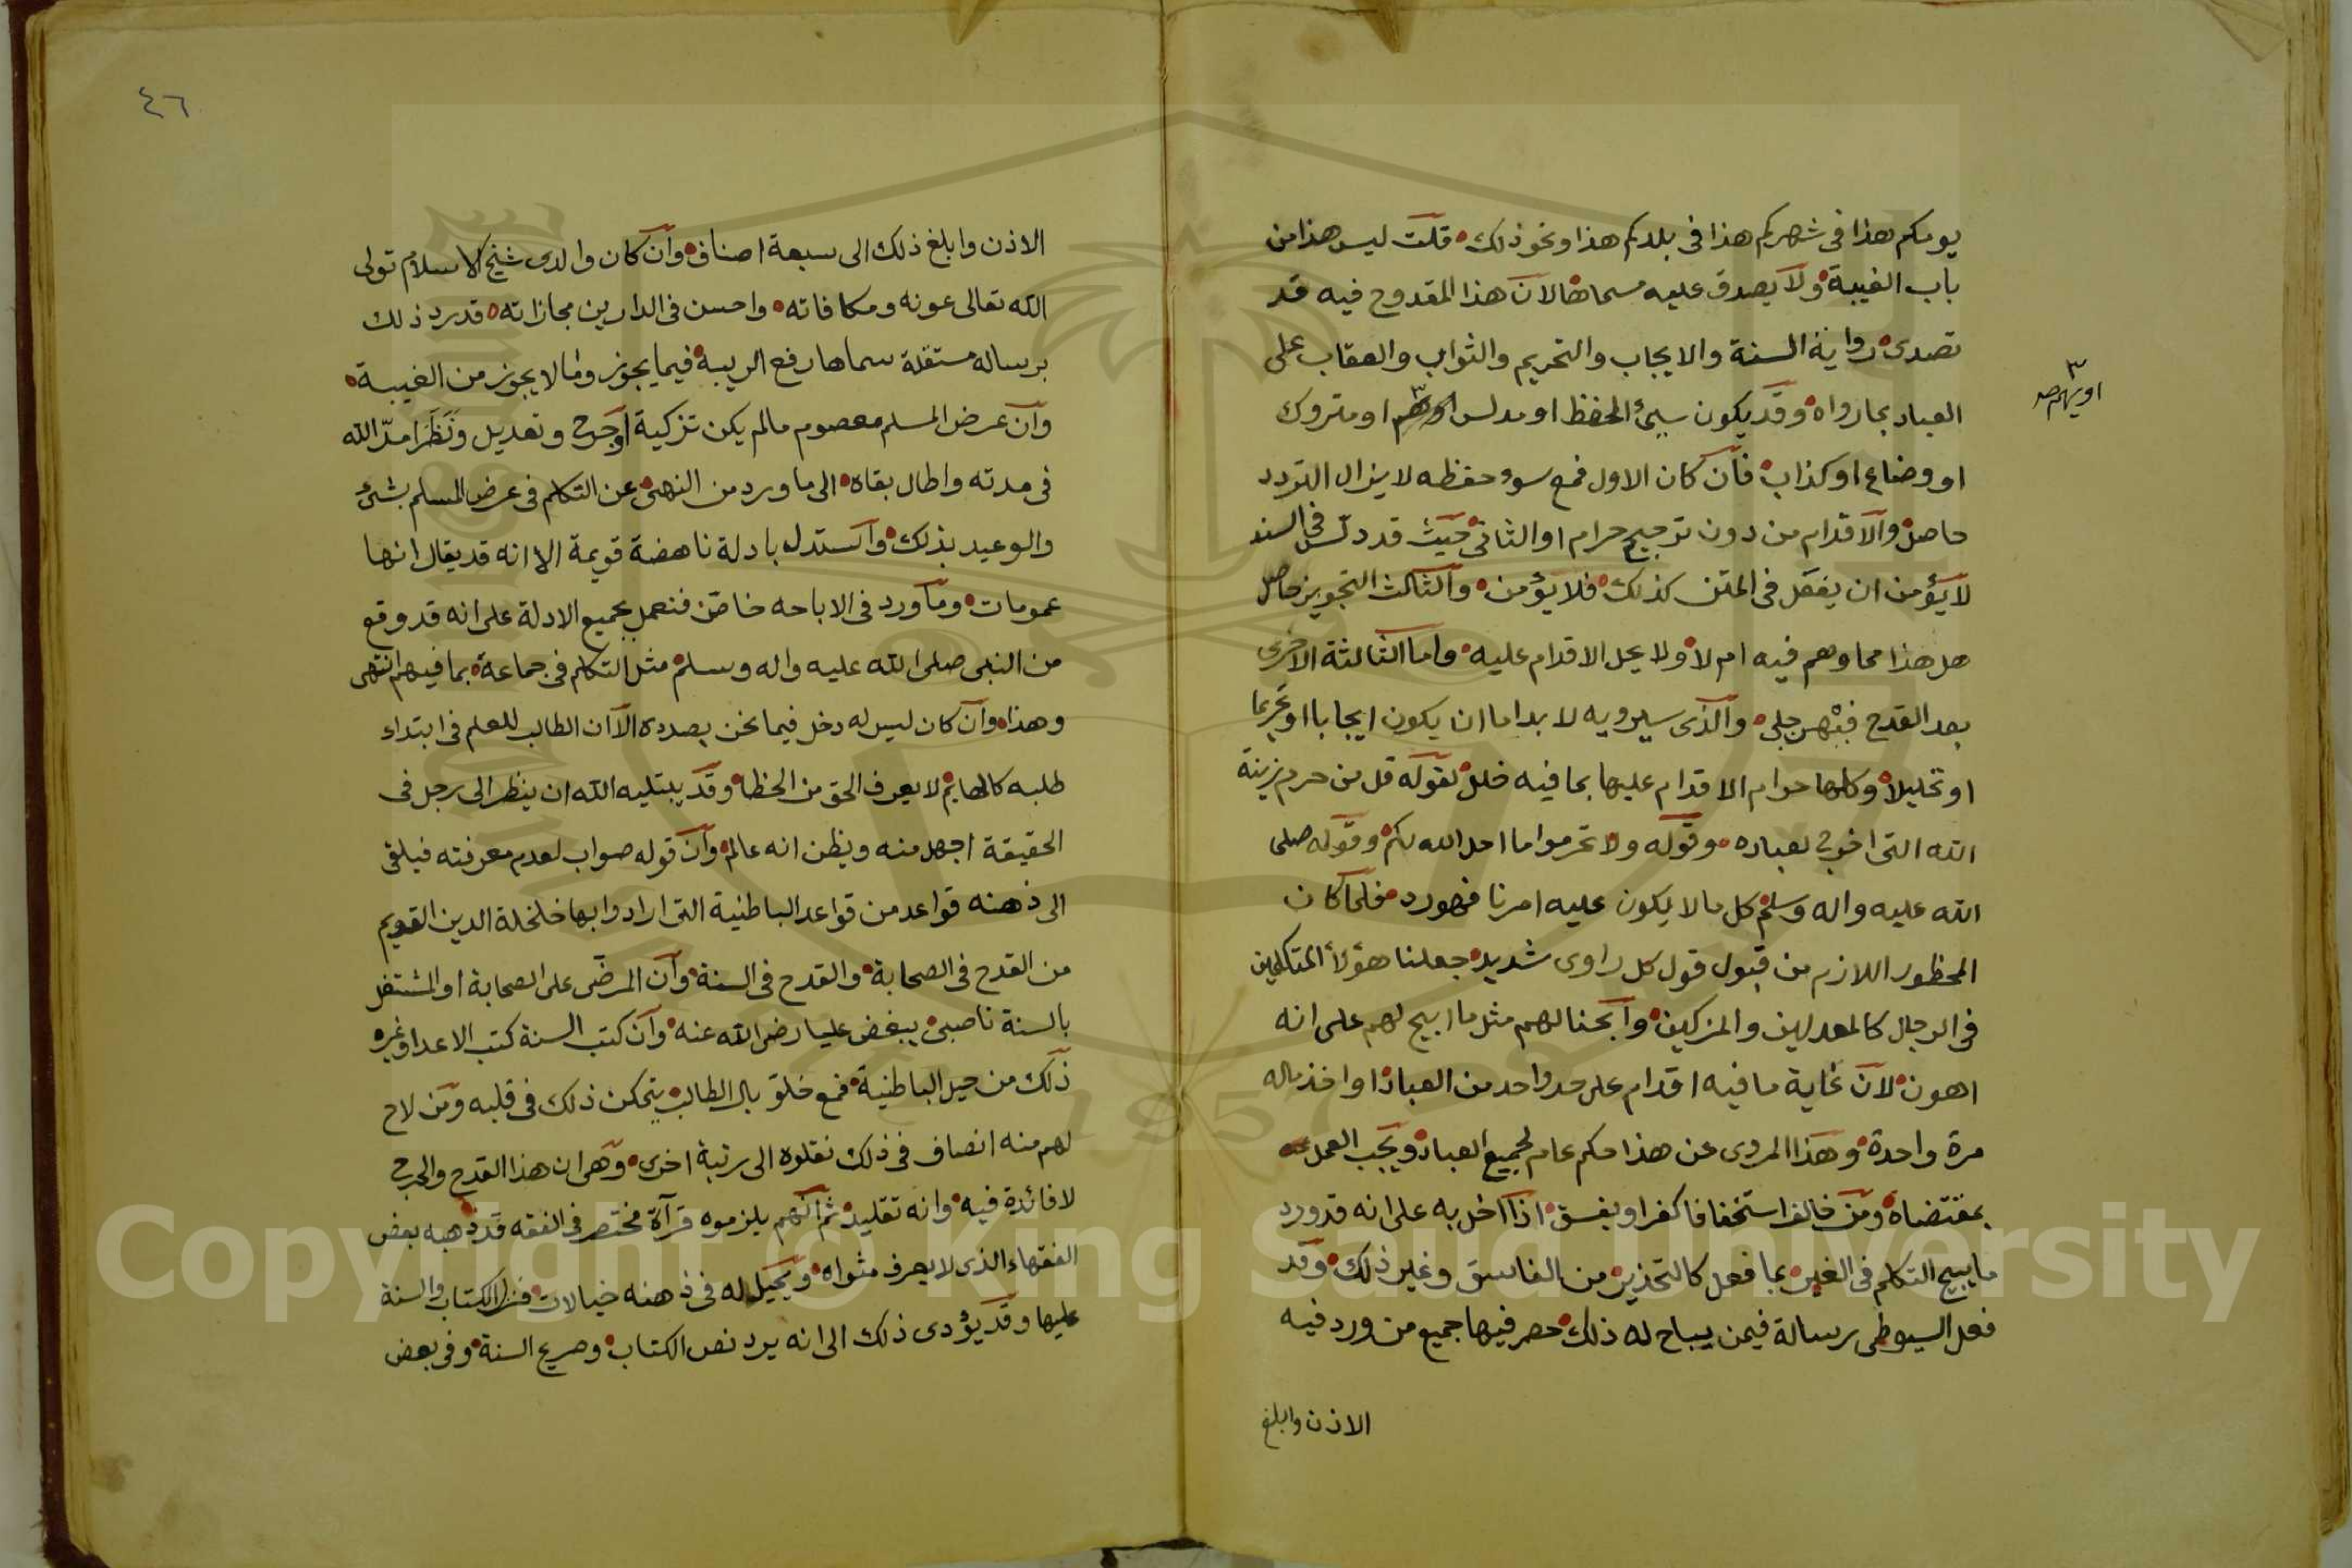 يومكم هذا في شهركم هذا في بلدكم هذا ونحو ذلك قلت ليس هذا من
باب الغيبة ولا يصدق عليه مسماها لان هذا المقدوح فيه قد
تصدى رواية السنة والايجاب والتحريم والثواب والعقاب على
العباد بما رواه وقد يكون سيئ الحفظ او مدلس او متروك
او يهم صح
او وضاع او كذاب فان كان الاول فمع سوء حفظه لا يزال التردد
حاصل والاقدام من دون ترجيح حرام او الثاني حيث قد دلس في السند
لا يؤمن ان يفعل في المتن كذلك فلا يؤمن والثالث التجويز حاصل
هل هذا مما وهم فيه ام لا ولا يحل الاقدام عليه واما الثالثة الاخرى
بعد القدح فيهن جلي والذي سيرويه لا بد اما ان يكون ايجابا او تحريما
او تحليلا وكلها حرام الاقدام عليها بما فيه خلل لقوله قل من حرم زينة
الله التي اخرج لعباده وقوله ولا تحرموا ما احل الله لكم وقوله صلى
الله عليه واله وسلم كل ما لا يكون عليه امرنا فهو رد فلما كان
المحظور اللازم من قبول قول كل راوي شديد جعلنا هؤلاء المتكلمين
في الرجال كالمعدلين والمزكين وابحنا لهم مثل ما ابيح لهم على انه
اهون لان غاية ما فيه اقدام على حد واحد من العباد او اخذ ماله
مرة واحدة وهذا المروى عن هذا حكم عام لجميع العباد ويجب العمل
بمقتضاه ومن خالف استخفافا كفر او يفسق اذا اخل به على انه قد ورد
ما يبيح التكلم في الغير بما فعل كالتحذير من الفاسق وغير ذلك وقد
فعل السيوطي رسالة فيمن يباح له ذلك حصر فيها جميع من ورد فيه
الاذن وابلغ
٤٦
الاذن وابلغ ذلك الى سبعة اصناف وان كان والدى شيخ الاسلام تولى
الله تعالى عونه ومكافاته واحسن في الدارين مجازاته قد رد ذلك
برساله مستقلة سماها رفع الريبة فيما يجوز وما لا يجوز من الغيبة
وان عرض المسلم معصوم مالم يكن تزكية او جرح وتعديل ونظرا مد الله
في مدته واطال بقاه الى ما ورد من النهى عن التكلم في عرض المسلم بشئ
والوعيد بذلك واستدل بادلة ناهضة قويمة الا انه قد يقال انها
عمومات وما ورد في الاباحه خاص فنعمل بجميع الادلة على انه قد وقع
من النبى صلى الله عليه واله وسلم مثل التكلم في جماعة بما فيهم انتهى
وهذا وان كان ليس له دخل فيما نحن بصدده الا ان الطالب للعلم في ابتداء
طلبه كالهايم لا يعرف الحق من الخطا وقد يبتليه الله ان ينظر الى رجل في
الحقيقة اجهل منه ويظن انه عالم وان قوله صواب لعدم معرفته فيلقى
الى ذهنه قواعد من قواعد الباطنية التي ارادوا بها خلخلة الدين القويم
من القدح في الصحابة والقدح في السنة وان المرضى على الصحابة او المشتغل
بالسنة ناصبي يبغض عليا رضى الله عنه وان كتب السنة كتب الاعدا وغيره
ذلك من حيل الباطنية فمع خلو بال الطالب يتمكن ذلك في قلبه ومن لاح
لهم منه انصاف في ذلك نقلوه الى رتبة اخرى وهى ان هذا القدح والجرح
لا فائدة فيه وانه تقليد ثم انهم يلزموه قرآة مختصر في الفقه قد ذهبه بعض
الفقهاء الذى لا يعرف مثواه ويخيل له في ذهنه خيالات فنزل الكتاب والسنة
عليها وقد يؤدى ذلك الى انه يرد نص الكتاب وصريح السنة وفي بعض
Copyright © King Saud University
1957